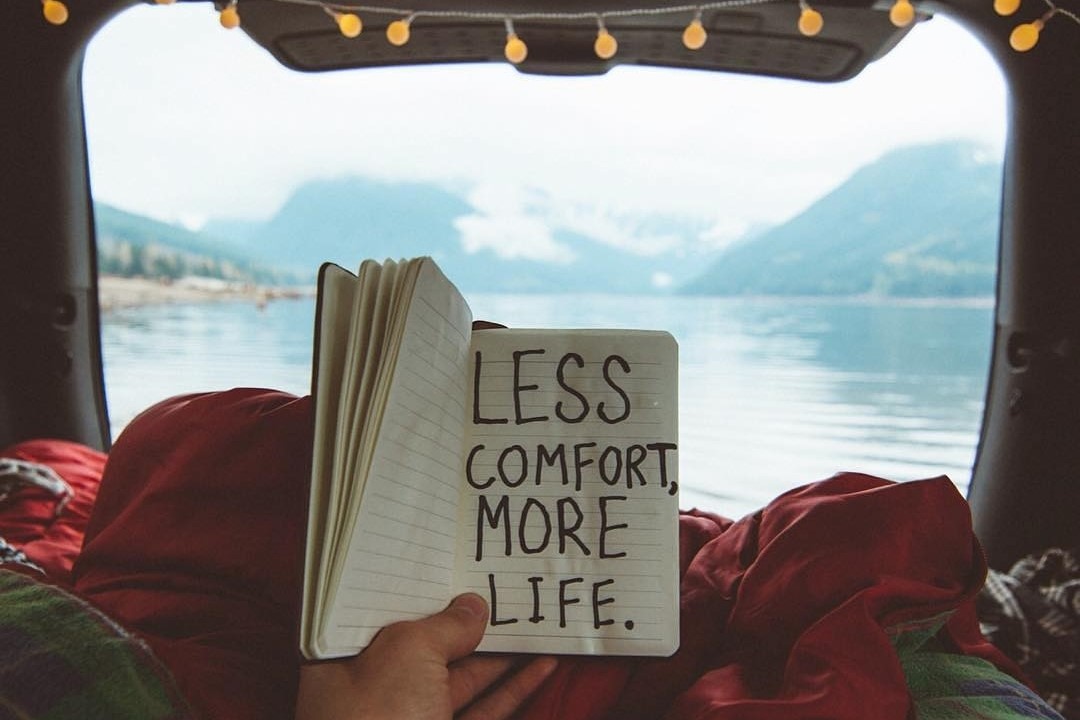 LESS
COMFORT,
MORE
LIFE.